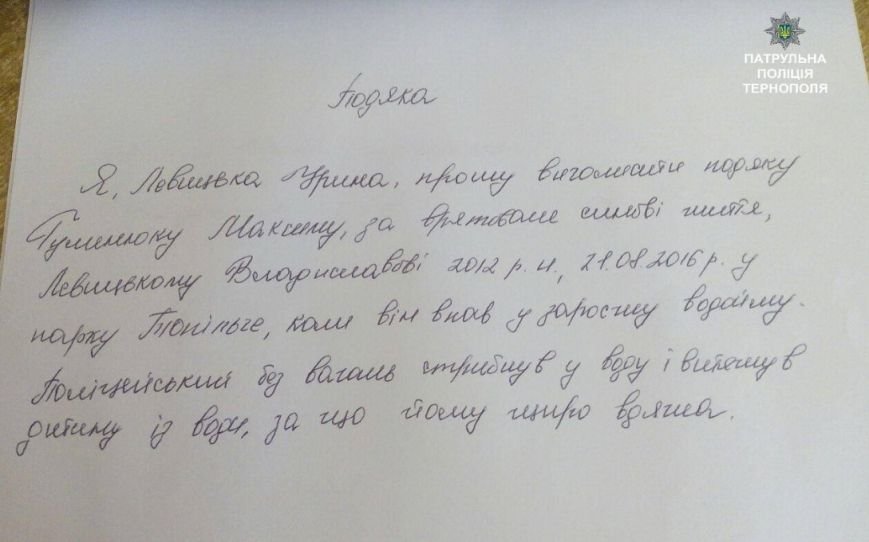 ПАТРУЛЬНА
ПОЛІЦІЯ
ТЕРНОПОЛЯ
Подяка
Я, Левицька Ірина, прошу виголосити подяку
Гуменюку Максиму, за врятоване синові життя,
Левицькому Владиславові 2012 р.н., 21.08.2016 р. у
парку Топільче, коли він впав у зарослу водойму.
Поліцейський без вагань стрибнув у воду і витягнув
дитину із води, за що йому щиро вдячна.